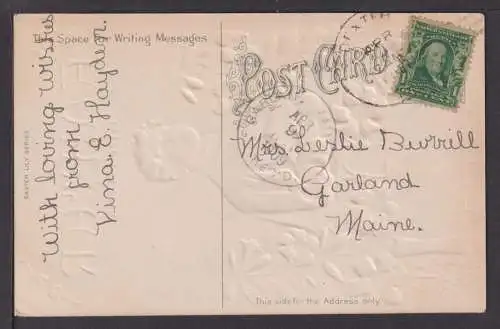 This Space for Writing Messages
With loving wishes
from
Vina E. Hayden.
EASTER LILY SERIES
POST CARD
Mrs Leslie Burrill
Garland
Maine.
This side for the Address only